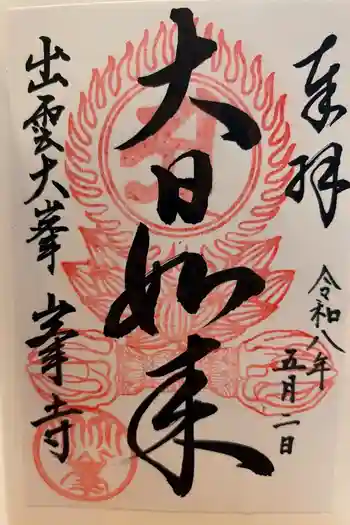 奉拝
令和八年
五月二日
大日如来
出雲大峯
峯寺